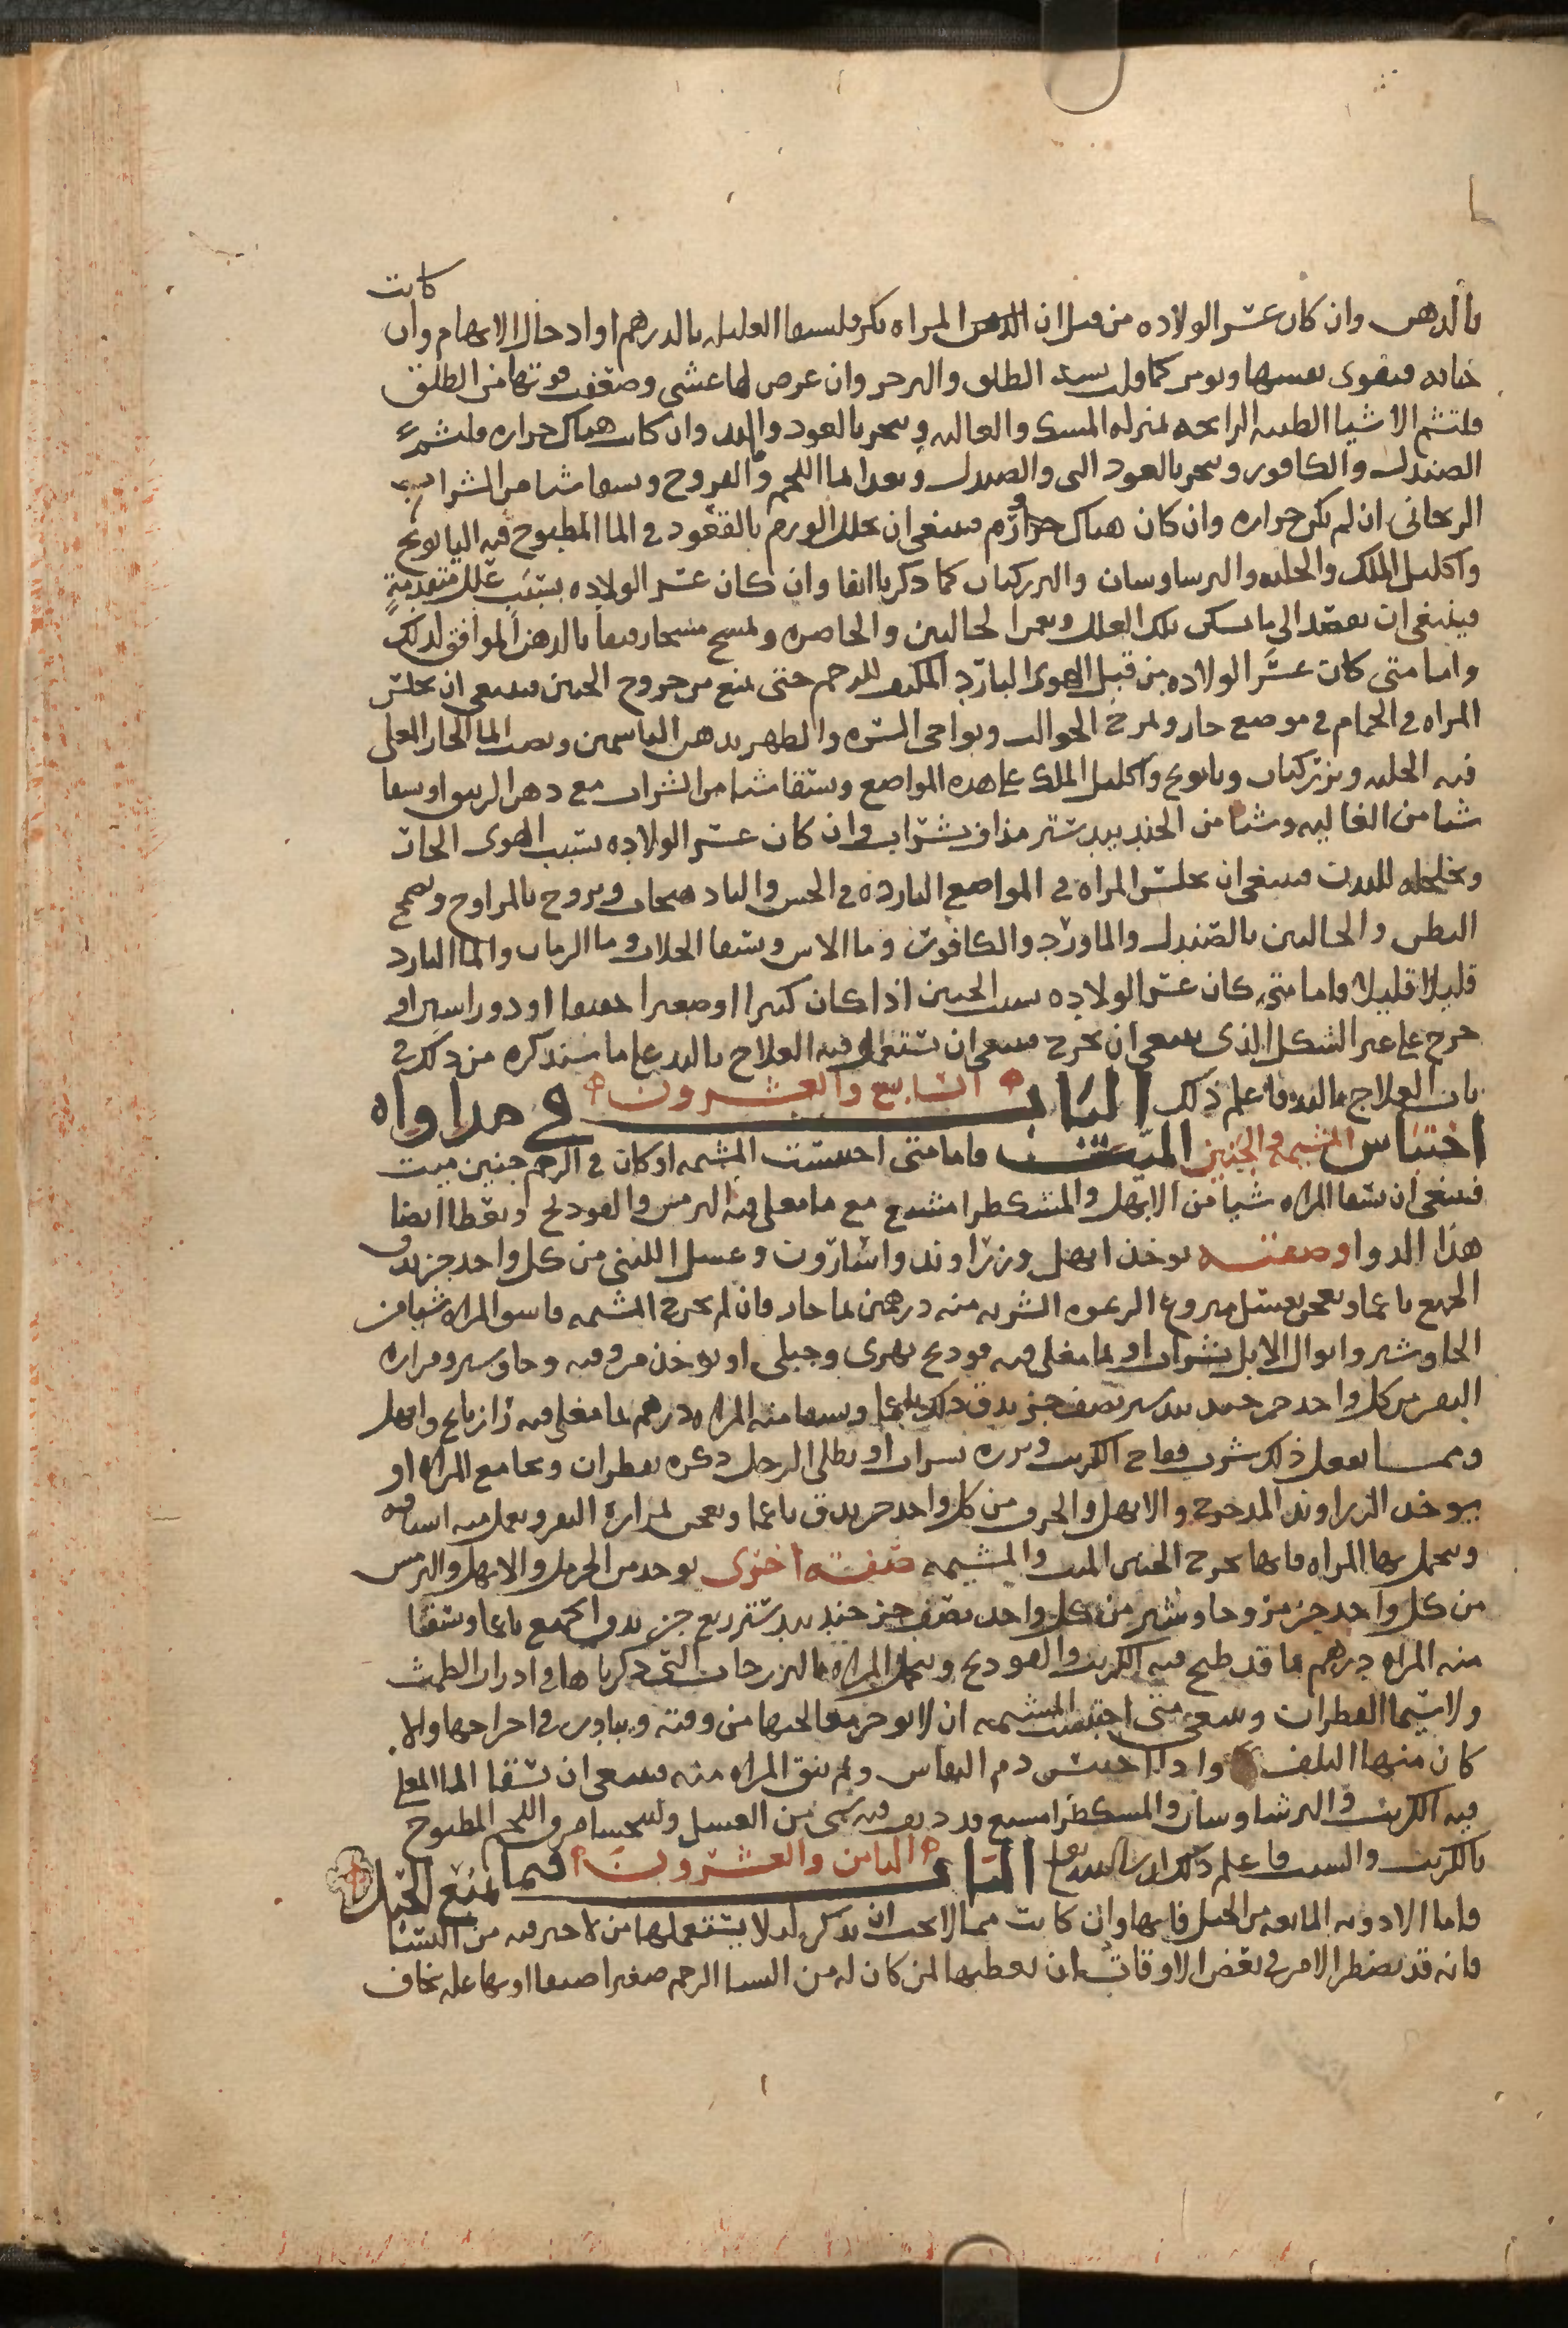 كانت
بالدهن وان كان عسر الولاده من قبل ان المراه بكر فليسها العليل بالدرهم او ادخال الابهام وان
جبانه فيقوى نفسها ويومر كما قيل بشد الطلق والزحر وان عرض لها غشي وضعفت قوتها من الطلق
فلتشم الاشيا الطيبه الرايحه بمنزله المسك والغاليه ويبخر بالعود والند وان كانت هناك حراره فليشم
الصندل والكافور ويبخر بالعود الني والصندل ويغدا بما اللحم والفروج ويسقا شيا من الشراب
الريحاني ان لم يكن حراره وان كان هناك ورم فينبغي ان يحلل الورم بالقعود في الما المطبوخ فيه البابونج
واكليل الملك والحلبه والبرساوسان والبزر كتان كما ذكرنا انفا وان كان عسر الولاده بسبب علل متقدمة
فينبغي ان يقصد الى ما يسكن تلك العلل ويغمز الحالبين والخاصره ويمسح مسحا رفيقا بالدهن الموافق لذلك
واما متى كان عسر الولاده من قبل الهوى البارد المكثف للرحم حتى يمنع من خروج الجنين فينبغي ان يجلس
المراه في الحمام في موضع حار ويمرخ الحوالب ونواحي السره والظهر بدهن الياسمين ويصب الما الحار المغلى
فيه الحلبه وبزر كتان وبابونج واكليل الملك على هذه المواضع وتسقا شيا من الشراب مع دهن الزيبق او يسقا
شيا من الغاليه وشيا من الجندبيدستر مذاف بشراب وان كان عسر الولاده بسبب الهوى الحار
وتخلخله للبدن فينبغي ان يجلس المراه في المواضع البارده في الخيس والبادهنجات ويروح بالمراوح ويضمخ
البطن والحالبين بالصندل والماورد والكافور وما الاس ويسقا الجلاب وما الرمان والما البارد
قليلا قليلا واما متى كان عسر الولاده بسبب الجنين اذا كان كبيرا او صغيرا خفيفا او ذو راسين او
خرج على غير الشكل الذي ينبغي ان يخرج فينبغي ان تستعمل فيه العلاج باليد على ما سنذكره من ذلك في
باب العلاج باليد فاعلم ذلك الباب السابع والعشرون في مداواه
احتباس المشيمه والجنين الميت فاما متى احتبست المشيمه او كان في الرحم جنين ميت
فينبغي ان يسقا المراه شيا من الابهل والمشكطرامشيع مع ما مغلى فيه الترمس والفودنج ويعطا ايضا
هذا الدوا وصفته يوخذ ابهل وزراوند واسارون وعسل اللبنى من كل واحد جز يدق
الجميع ناعما ويعجن بعسل منزوع الرغوه الشربه منه درهمين بما حار فان لم يخرج المشيمه فاسق المراه شيا من
الجاوشير وابوال الابل بشراب او بما مغلي فيه فودنج نهرى وجبلى او يوخذ مر وقنه وجاوشير ومراره
البقر من كل واحد جز جندبيدستر نصف جز يدق ذلك ناعما ويسقا منه المراه درهم بما مغلى فيه رازيانج وابهل
ومما يفعل ذلك شرب فقاح الكرنب وبزره بشراب او يطلى الرجل ذكره بقطران ويجامع المراه او
يوخذ الزراوند المدحرج والابهل والحرف من كل واحد جز يدق ناعما ويعجن بمرارة البقر ويعمل منه اشيافه
وتحمل بها المراه فانها تخرج الجنين الميت والمشيمه صفته اخرى يوخذ من الحرمل والابهل والترمس
من كل واحد جز مر وجاوشير من كل واحد نصف جز جندبيدستر ربع جز يدق الجميع ناعما وتسقا
منه المراه درهم بما قد طبخ فيه الكرنب والفودنج وتحمل المراه بالفرزجات التي ذكرناها في ادرار الطمث
ولا سيما القطران وينبغي متى احتبست المشيمه ان لا يوخر معالجتها من وقته ويبادر في اخراجها والا
كان منها التلف واذا احتبس دم النفاس ولم ينق المراه منه فينبغي ان تسقا الما المغلى
فيه الكرنب والبرشاوسان والمسكطرامسيع قد ديف فيه شي من العسل وليتحسا مرق اللحم المطبوخ
بالكرنب والشبت فاعلم ذلك الباب الثامن والعشرون فيما يمنع الحبل
فاما الادويه المانعه من الحبل فانها وان كانت مما لا يجب ان يذكر لئلا يستعملها من لا خير فيه من النسا
فانه قد يضطر الامر في بعض الاوقات ان يعطيها لمن كان له من النسا الرحم صغيرا ضيقا او بها عله يخاف